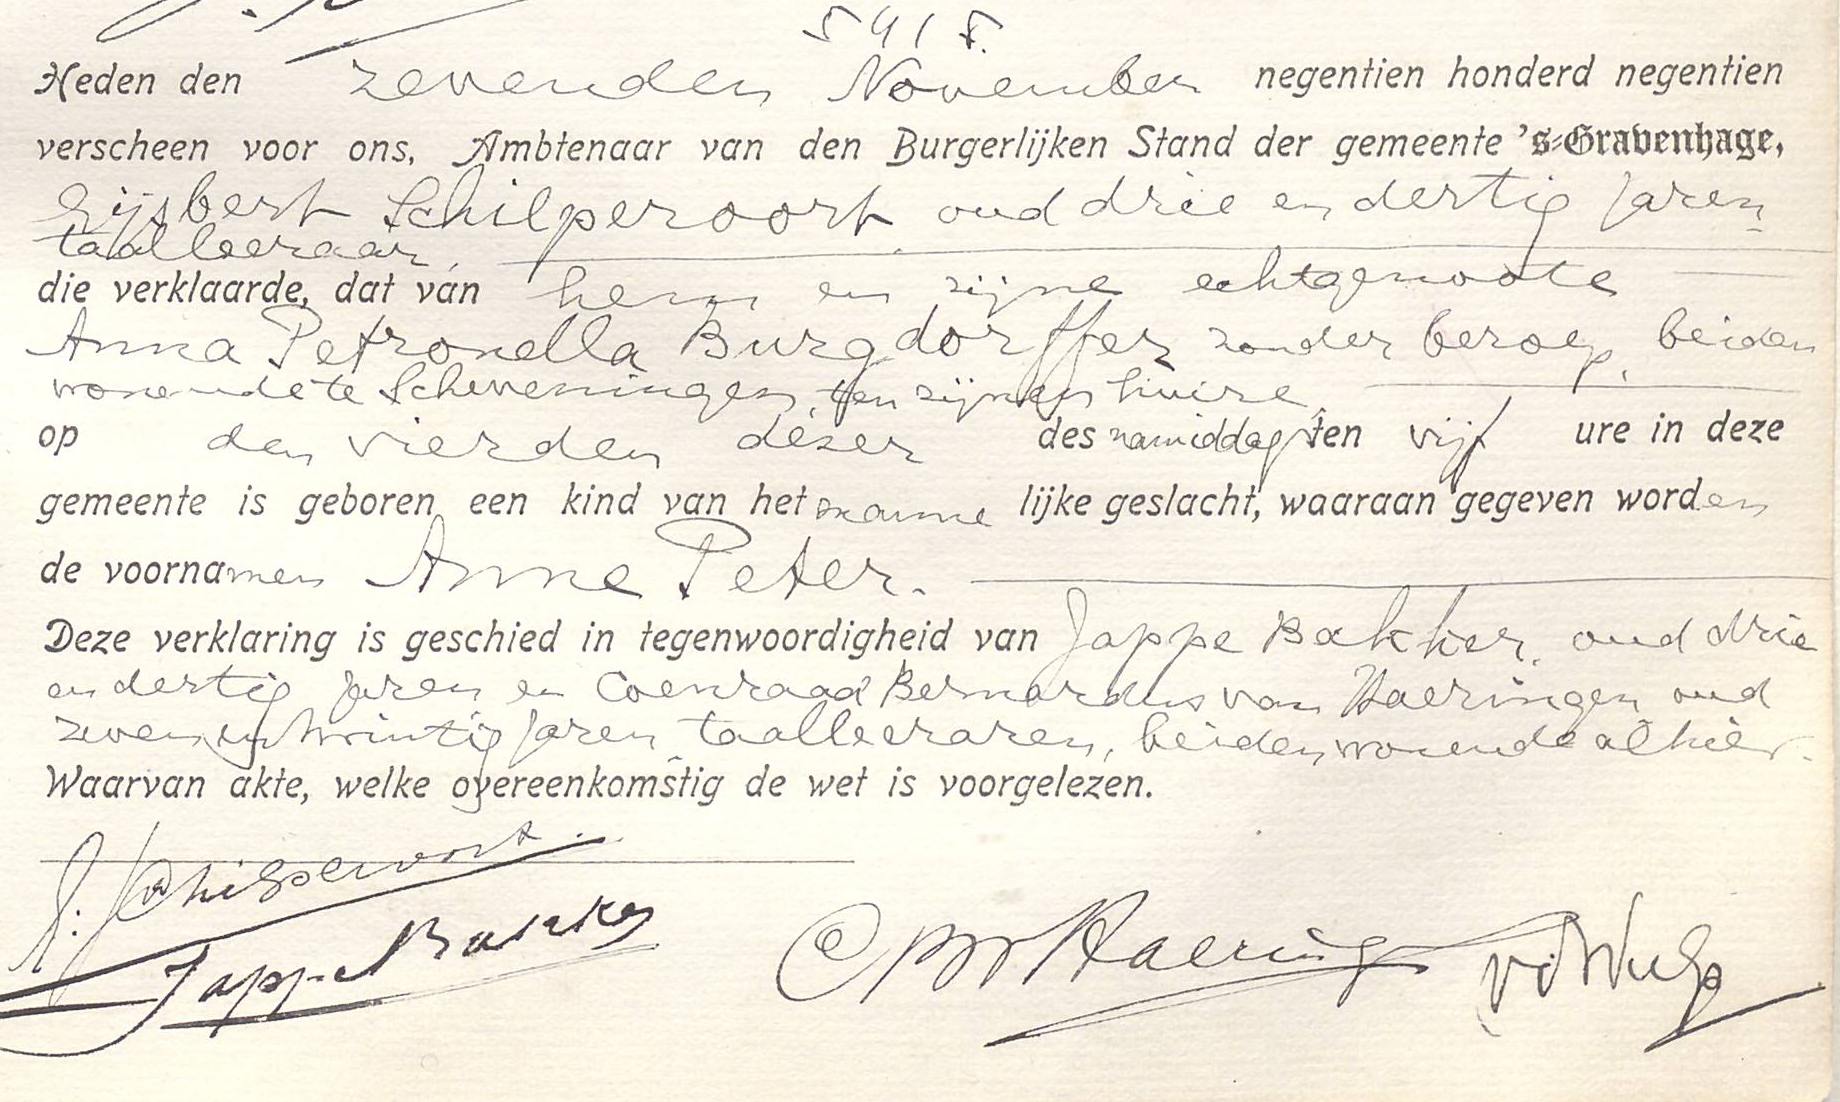 5418.
Heden den zevenden November negentien honderd negentien
verscheen voor ons, Ambtenaar van den Burgerlijken Stand der gemeente 's-Gravenhage,
Gijsbert Schilperoort oud drie en dertig jaren
taalleeraar,
die verklaarde, dat van hem en zijne echtgenoote
Anna Petronella Burgdorffer zonder beroep, beiden
wonende te Scheveningen, ten zijnen huize,
op den vierden dezer des namiddags ten vijf ure in deze
gemeente is geboren een kind van het manne lijke geslacht, waaraan gegeven worden
de voornamen Anne Peter.
Deze verklaring is geschied in tegenwoordigheid van Jappe Bakker, oud drie
en dertig jaren en Coenraad Bernardus van Haeringen oud
zeven en twintig jaren, taalleeraren, beiden wonende alhier.
Waarvan akte, welke overeenkomstig de wet is voorgelezen.
G. Schilperoort.
Jappe Bakker
CBvHaeringen